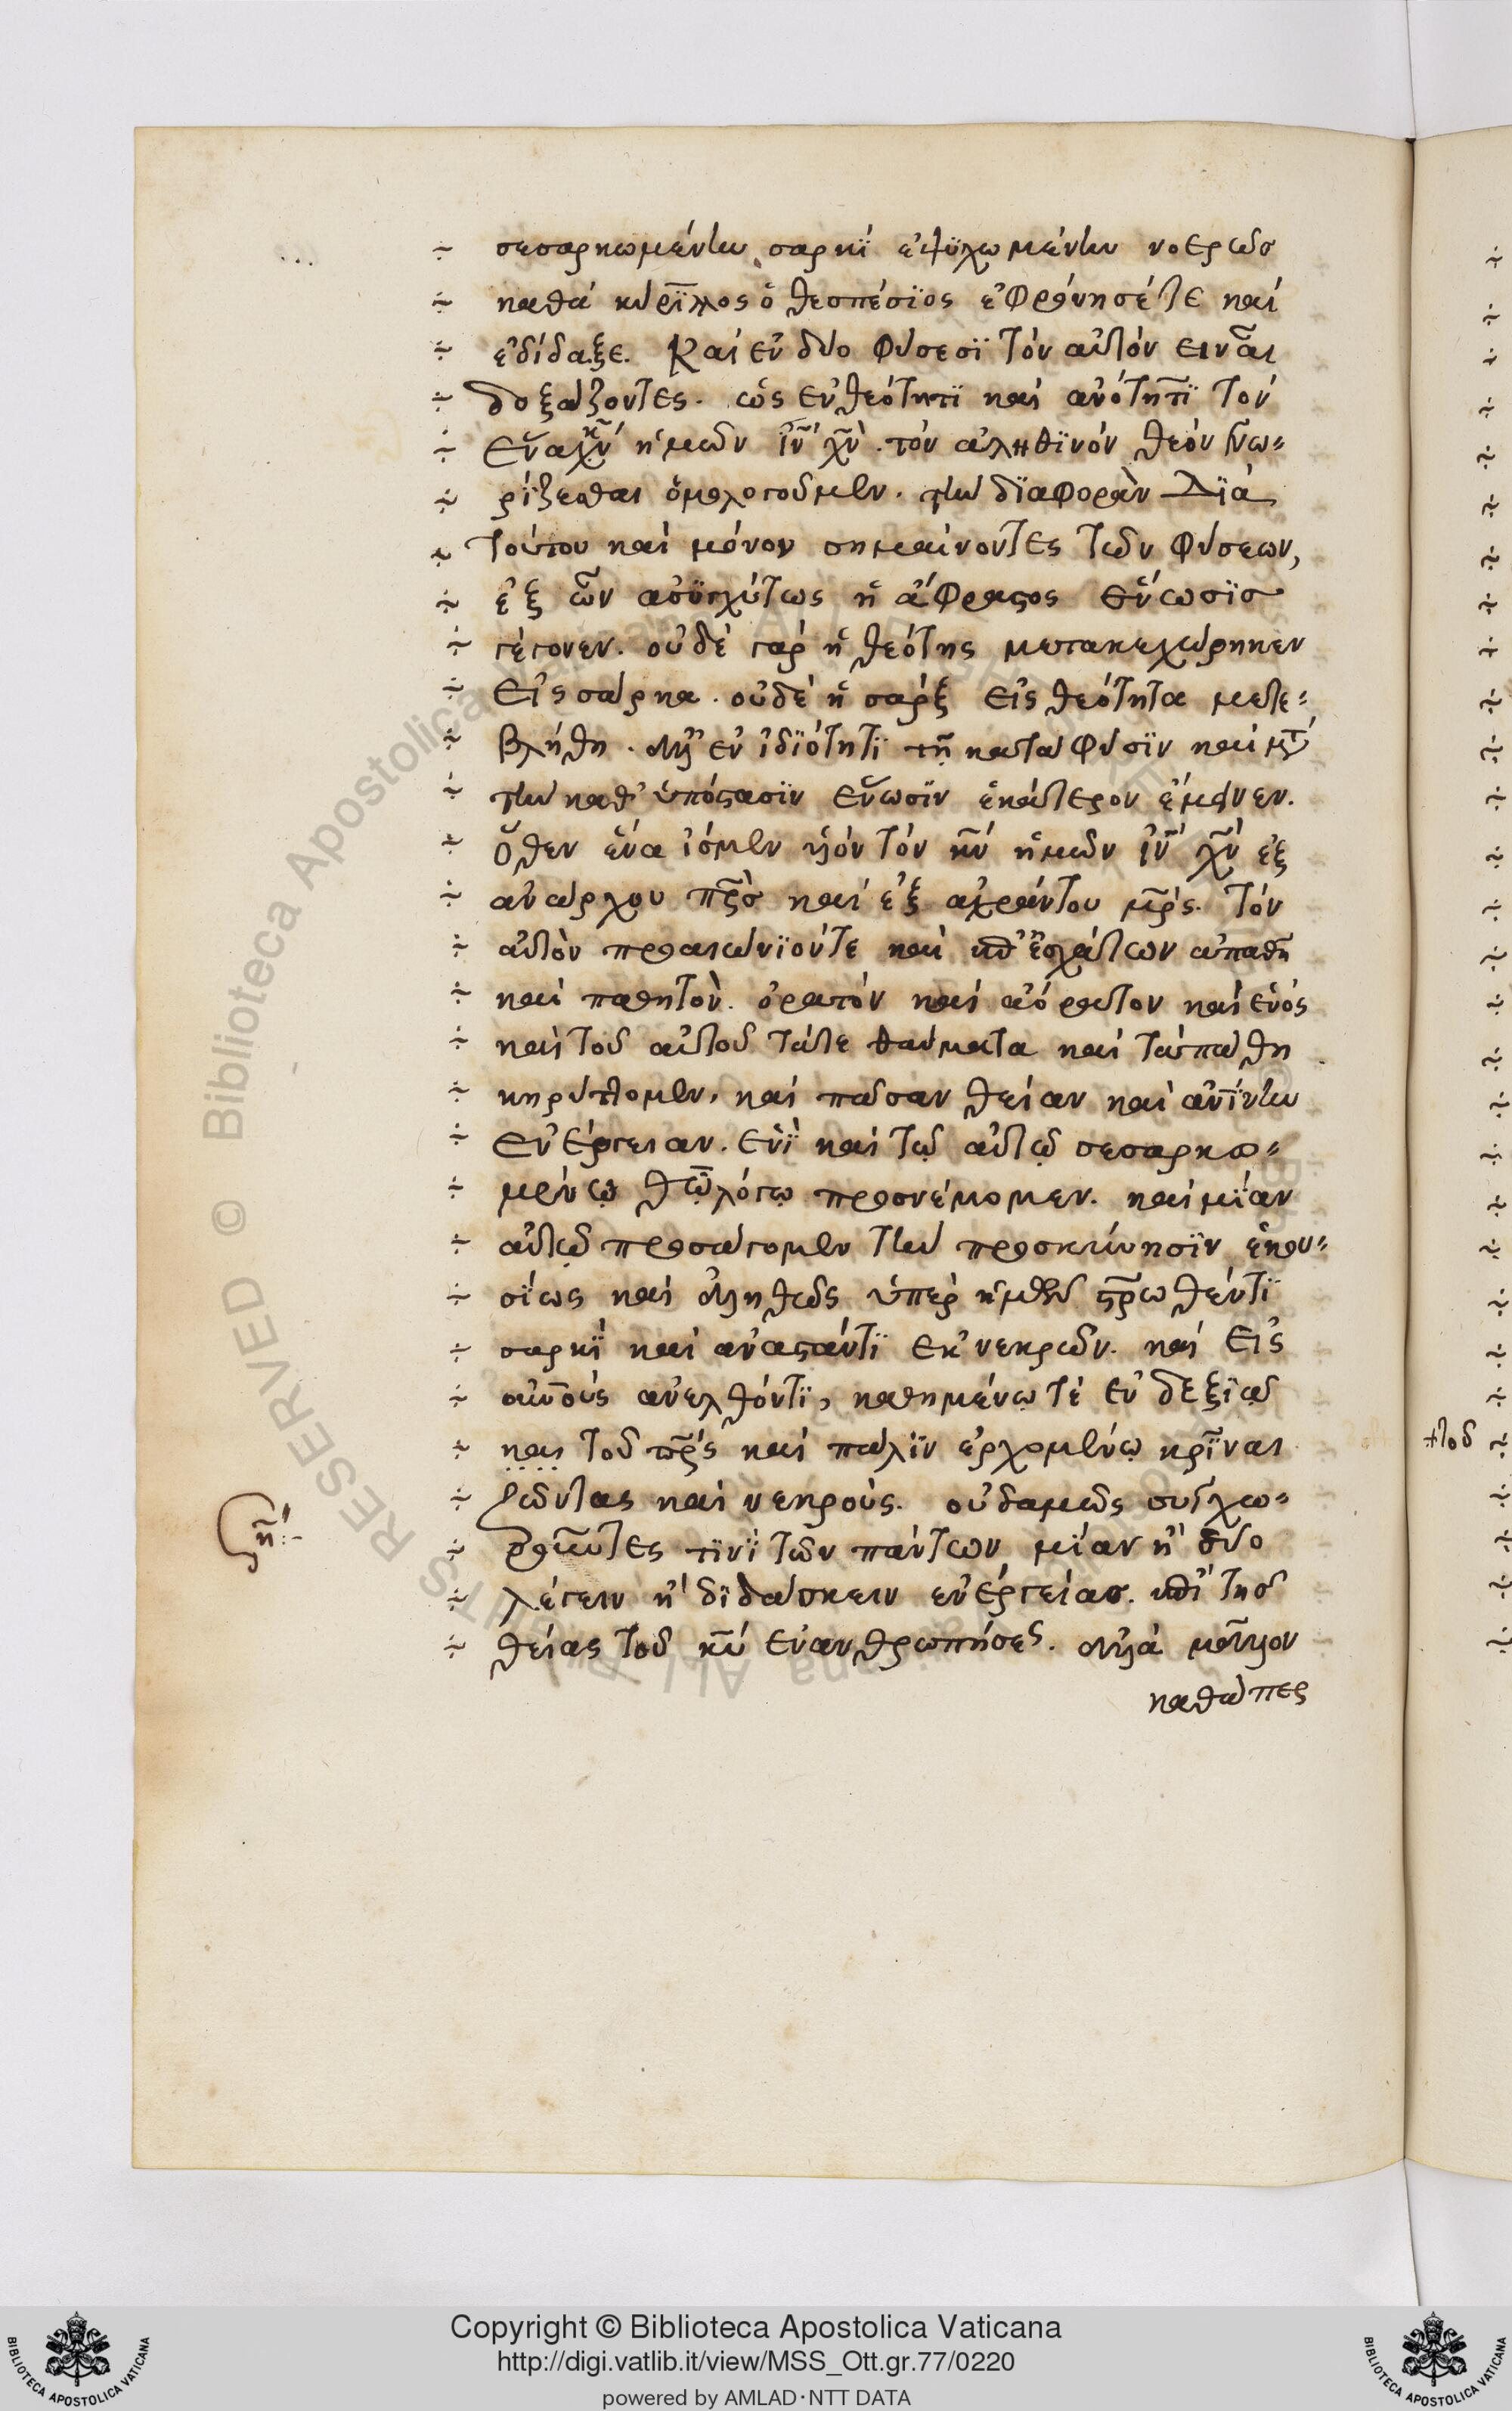 σεσαρκωμένην σαρκὶ ἐψυχωμένην νοερῶσ
καθά κύρϊλλος ὁ θεσπέσϊος ἐφρόνησέτε καί
ἐδίδαξε. Καί ἐν δύο φύσεσϊ τόν αὐτόν εἶναι
δοξάζοντες. ὡς ἐν θεότητϊ καί ἀνότητϊ τόν
ἕνα κν̄ ἡμῶν ϊν̄ χν̄. τόν ἀληθϊνόν θεόν γνω-
ρίζεσθαι ὁμολογοῦμεν. τὴν δϊαφορὰν Δϊὰ
τούτου καί μόνον σημαίνοντες τῶν φύσεων,
ἐξ ὧν ἀσϋγχύτως ἡ ἄφραστος ἕνωσϊσ
γέγονεν. οὐδέ γάρ ἡ θεότης μετακεχώρηκεν
εἰς σάρκα. οὐδὲ ἡ σάρξ εἰς θεότητα μετε-
βλήθη. ἀλλ' ἐν ἰδϊότητϊ τῇ κατά φύσϊν καί μτ̄
τὴν καθ' ὑπόστασϊν ἕνωσϊν ἑκάτερον ἔμεινεν.
ὅθεν ἕνα ἴσμεν υἱόν τόν κν̄ ἡμῶν ἰν̄ χν̄ ἐξ
ἀνάρχου πρ̄σ καί ἐξ ἀχράντου μρ̄ς. τόν
αὐτὸν προαιώνϊόντε καὶ ἐπ' ἐσχάτων ἀπαθῆ
καί παθητὸν. ὁρατόν καί ἀόρατον καί ἑνός
καὶ τοῦ αὐτοῦ τάτε θαύματα καί τάπάθη
κηρύττομεν, καί πᾶσαν θείαν καί ἀνϊ̄νην
ἐνέργειαν. ἑνῒ καί τῷ αὐτῷ σεσαρκω-
μένῳ θῷ λόγῳ προσνέμομεν. καί μΐαν
αὐτῷ προσάγομεν τὴν προσκύνησϊν ἑκου-
σΐως καί ἀληθῶς ὑπέρ ἡμῶν στρ̄ωθέντϊ
σαρκΐ καί ἀναστάντϊ ἐκ νεκρῶν. καί εἰς
οὐν̄ούς ἀνελθόντϊ, καθημένῳ τέ ἐν δεξϊᾷ
και τοῦ πρ̄ς καί πάλϊν ἐρχομένῳ κρῖναι
ζῶντας καί νεκρούς. οὐδαμῶς συγχω-
ροῦντες τϊνΐ τῶν πάντων μΐαν ἢ δύο
λέγειν ἢ δϊδάσκειν ἐνέργείασ. ἐπὶ τῆσ
θείας τοῦ κῡ ἐνανθρωπήσεως. ἀλλά μᾶλλον
καθάπερ
η̄:-
πτοῦ
Copyright © Biblioteca Apostolica Vaticana
http://digi.vatlib.it/view/MSS_Ott.gr.77/0220
powered by AMLAD·NTT DATA
BIBLIOTECA APOSTOLICA VATICANA
BIBLIOTECA APOSTOLICA VATICANA